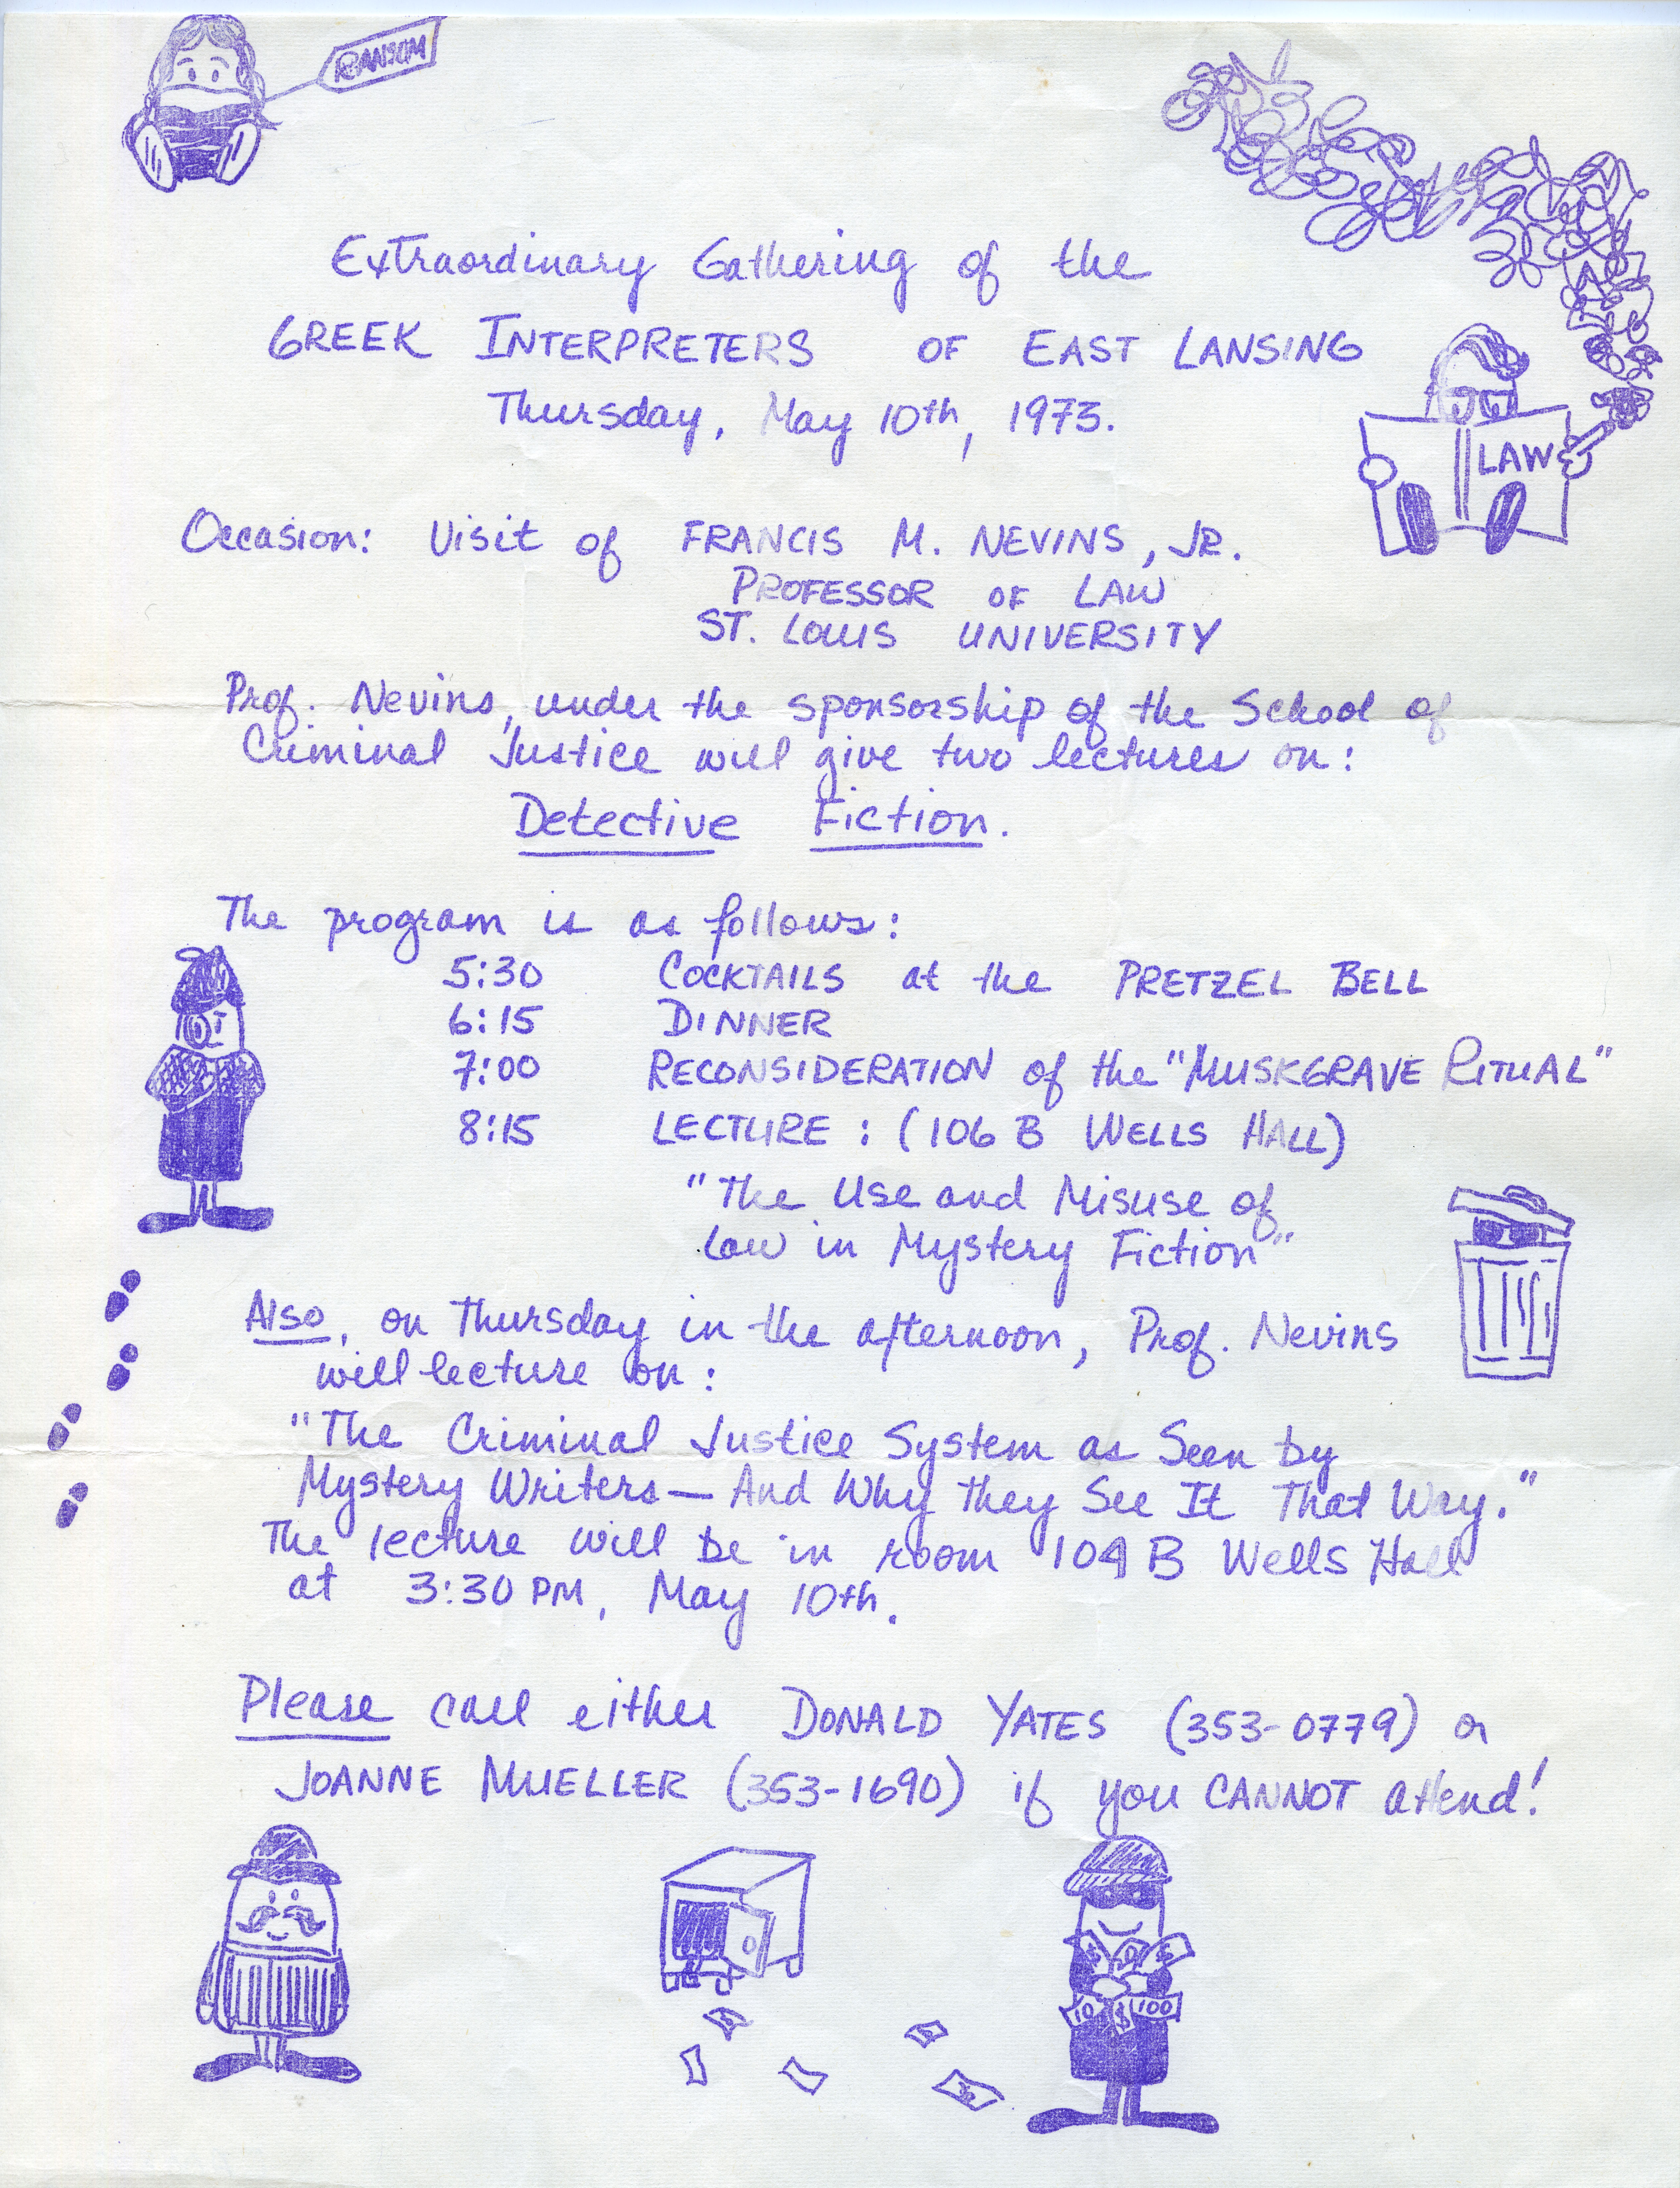 RANSOM
Extraordinary Gathering of the
GREEK INTERPRETERS OF EAST LANSING
Thursday, May 10th, 1973.
LAW
Occasion: Visit of FRANCIS M. NEVINS, JR.
PROFESSOR OF LAW
ST. LOUIS UNIVERSITY
Prof. Nevins, under the sponsorship of the School of
Criminal Justice will give two lectures on:
Detective Fiction.
The program is as follows:
5:30 COCKTAILS at the PRETZEL BELL
6:15 DINNER
7:00 RECONSIDERATION of the "MUSKGRAVE RITUAL"
8:15 LECTURE: (106 B WELLS HALL)
"The Use and Misuse of
Law in Mystery Fiction"
Also, on Thursday in the afternoon, Prof. Nevins
will lecture on:
"The Criminal Justice System as Seen by
Mystery Writers — And Why they See It That Way."
The lecture will be in room 104 B Wells Hall
at 3:30 PM, May 10th.
Please call either DONALD YATES (353-0779) or
JOANNE MUELLER (353-1690) if you CANNOT attend!
$ $ $
10 $ 100
$